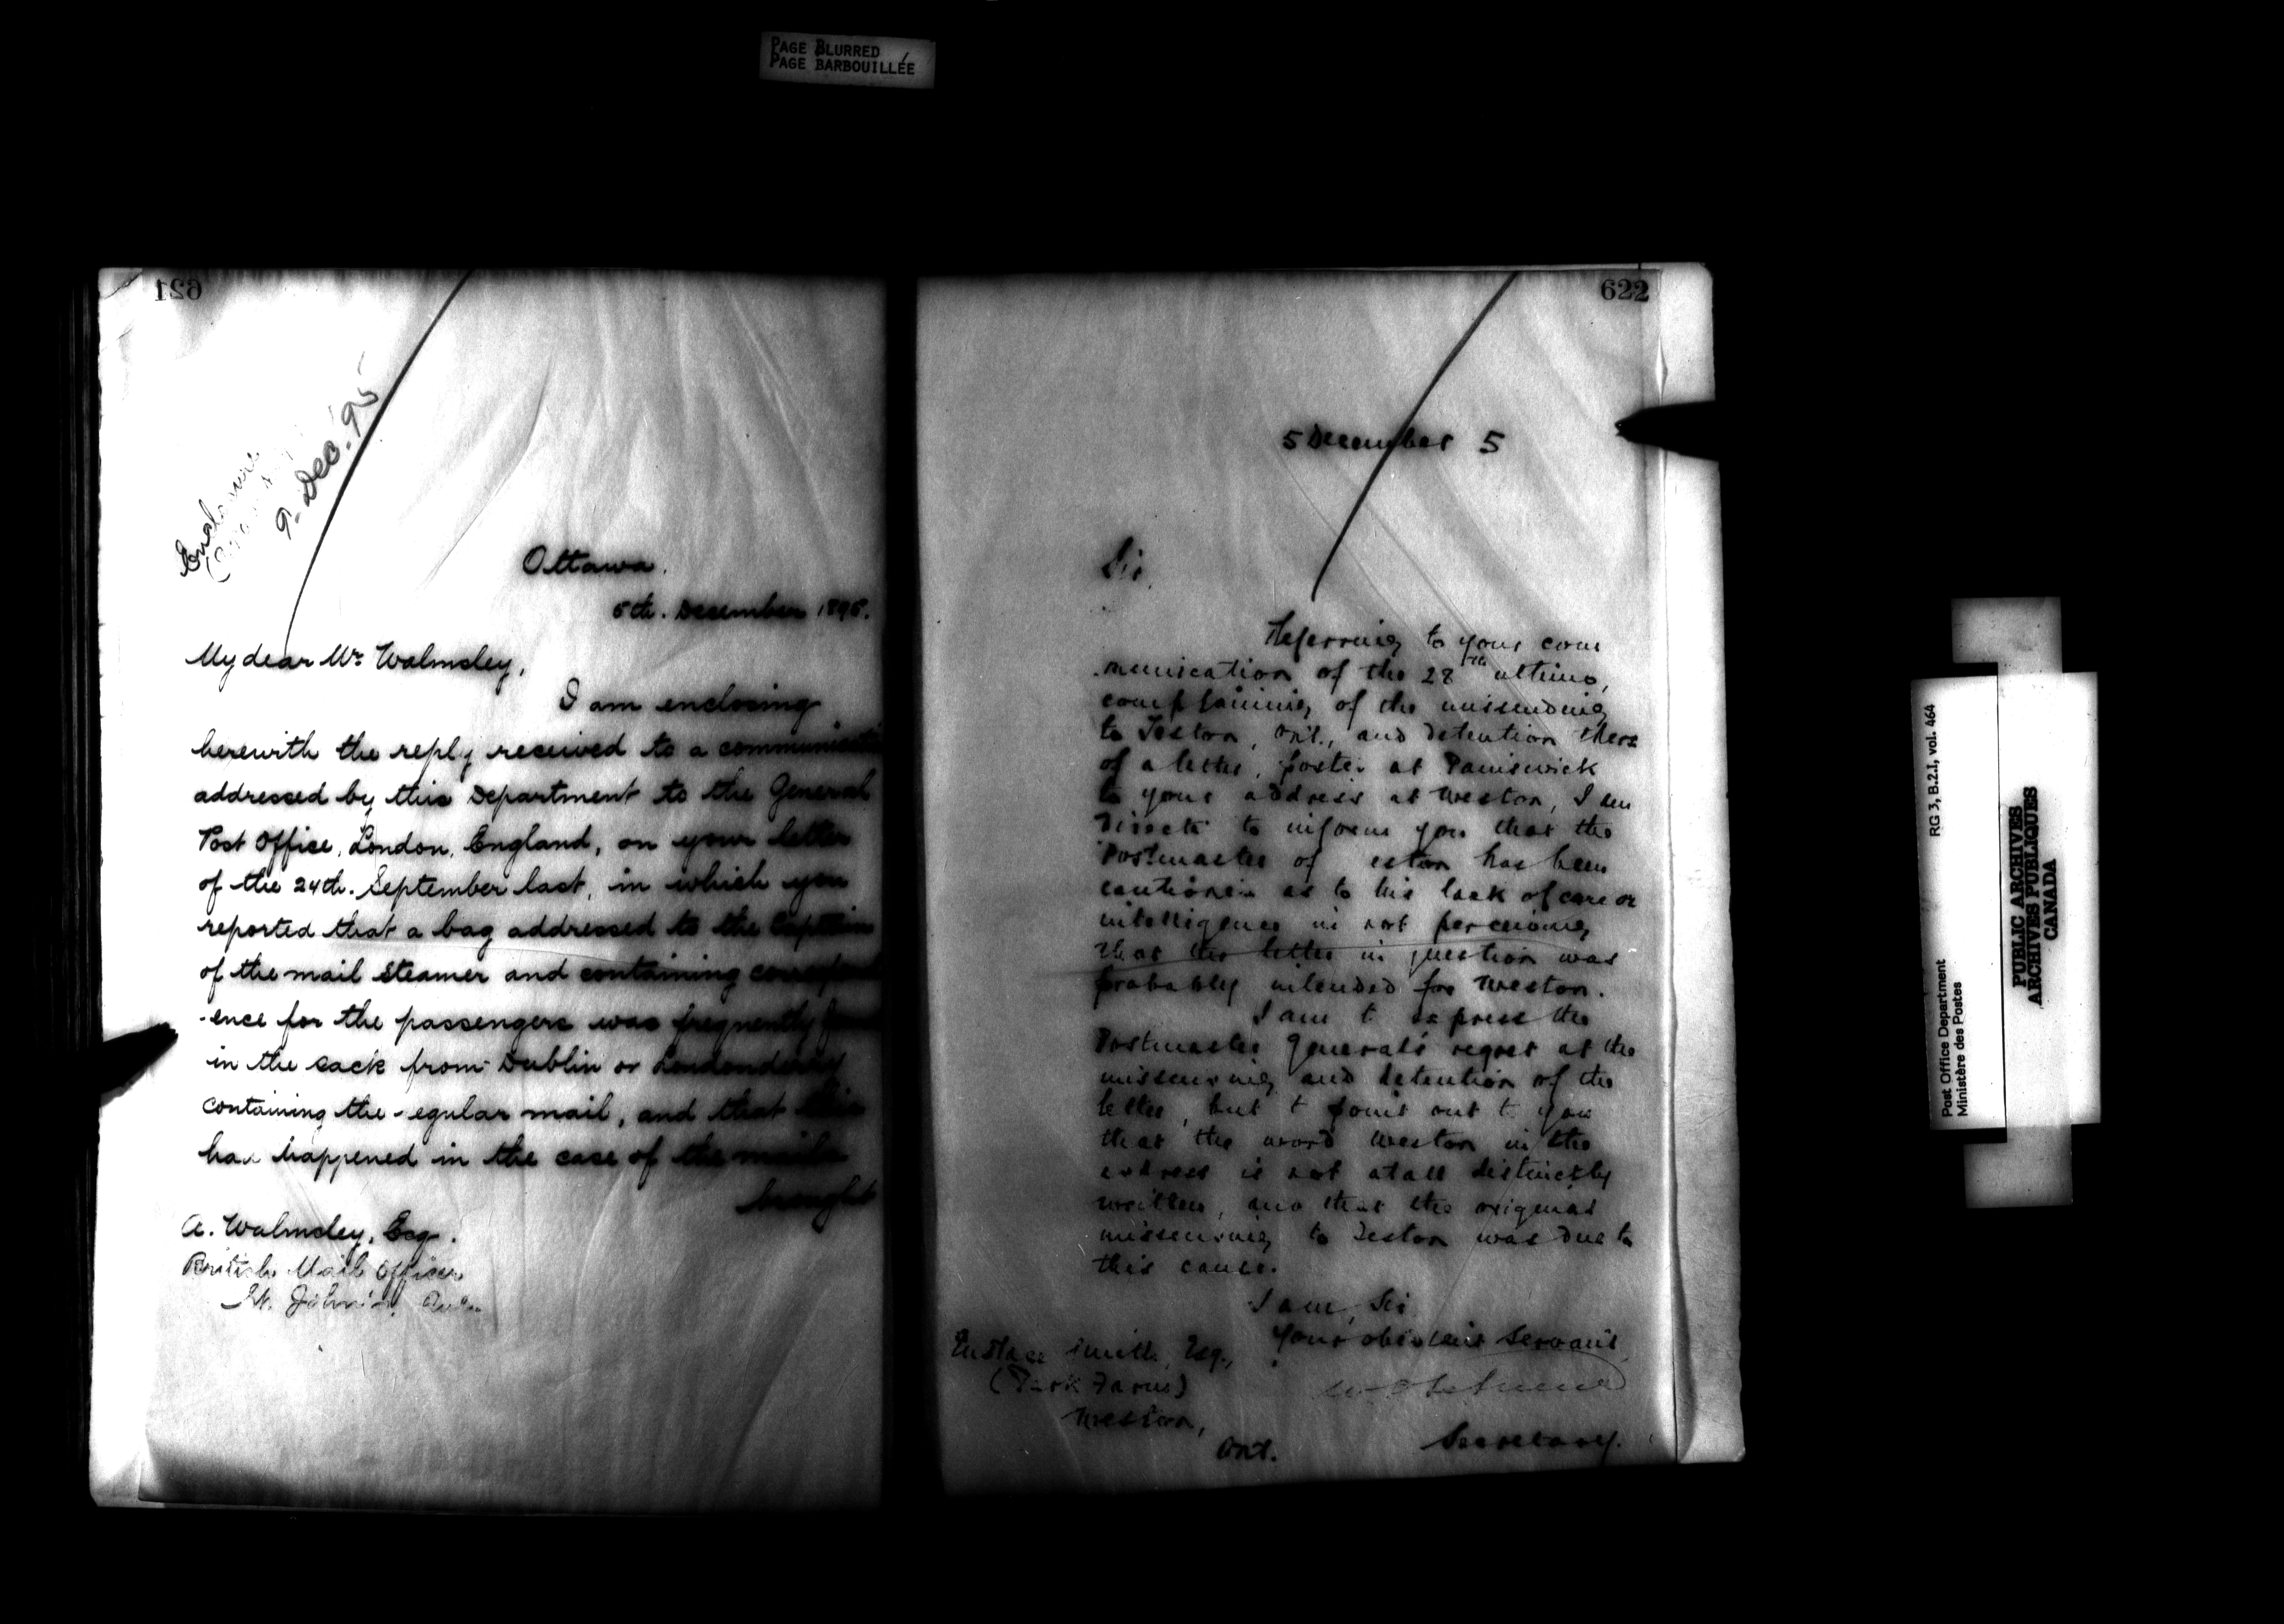 PAGE BLURRED
PAGE BARBOUILLÉE
621
Enclosure
9. Dec. '95
Ottawa.
5th. December 1895.
My dear Mr. Walmsley,
I am enclosing
herewith the reply received to a
addressed by this Department to the General
Post Office, London, England, on your letter
of the 24th. September last, in which you
reported that a bag addressed to the Captain
of the mail steamer and containing
-ence for the passengers was frequently
in the sack from Dublin or Londonderry
containing the regular mail, and that this
has happened in the case of the mails
brought
A. Walmsley, Esq.
British Mail Officer
St. John's,
622
5 December 5
Sir,
Referring to your com
munication of the 28th ultimo,
complaining of the missending
to Teston, Ont., and detention there
of a letter, posted at Painswick
to your address at Weston, I am
directed to inform you that the
Postmaster of eston has been
cautioned as to his lack of care or
intelligence in not perceiving
that the letter in question was
probably intended for Weston.
I am to express the
Postmaster General's regret at the
missending and detention of the
letter, but to point out to you
that the word Weston in the
address is not at all distinctly
written, and that the original
missending to Teston was due to
this cause.
I am, Sir
Your obedient Servant
Eustace Smith, Esq.,
(Park Farm)
Weston,
Ont.
Secretary.
Post Office Department
Ministère des Postes
RG 3, B.2.1, vol. 464
PUBLIC ARCHIVES
ARCHIVES PUBLIQUES
CANADA